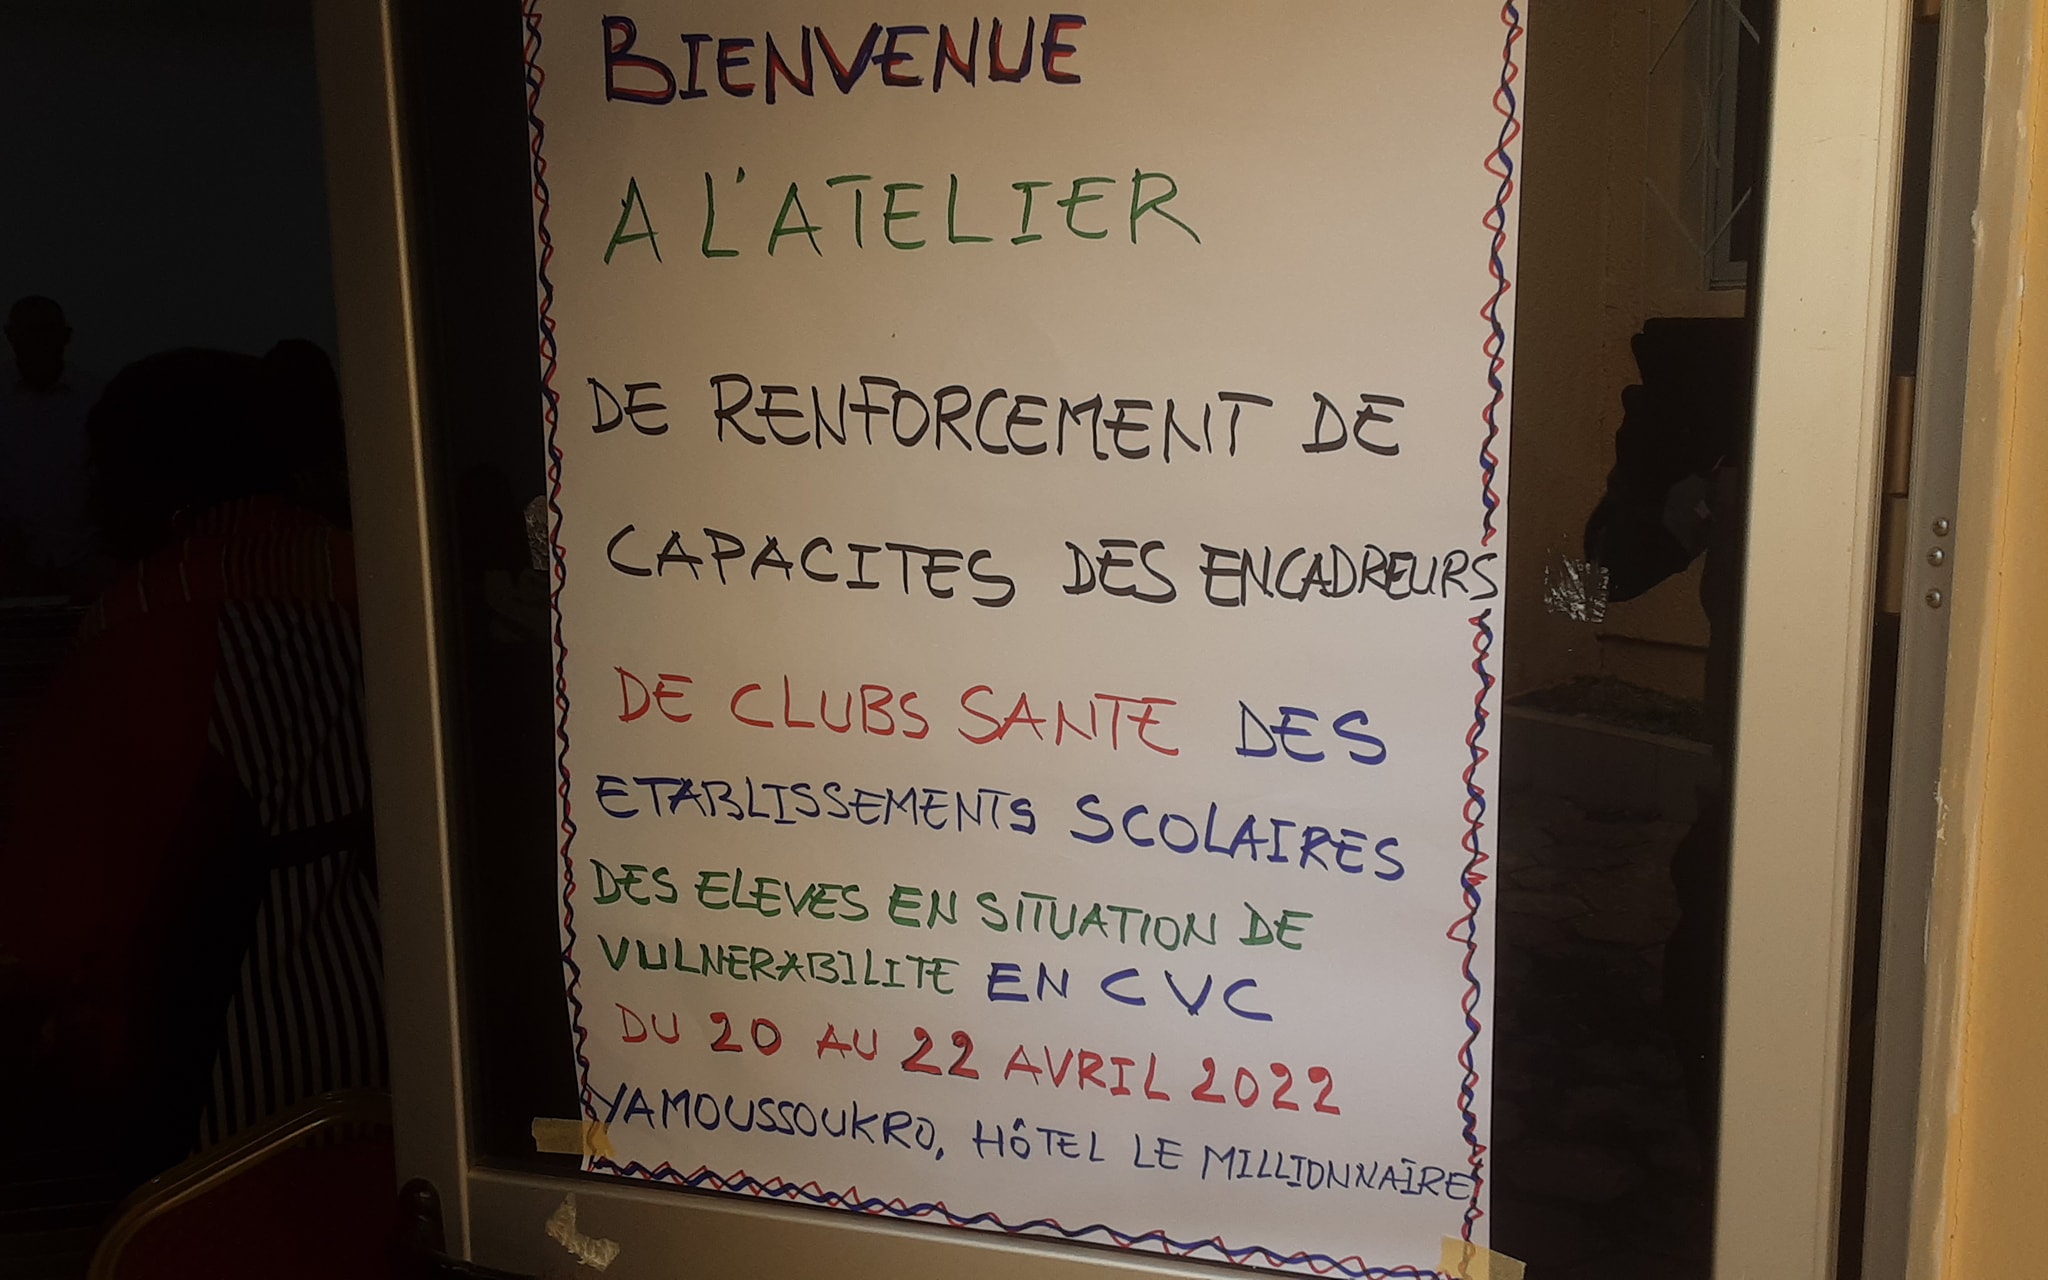 BIENVENUE
A L'ATELIER
DE RENFORCEMENT DE
CAPACITES DES ENCADREURS
DE CLUBS SANTE DES
ETABLISSEMENTS SCOLAIRES
DES ELEVES EN SITUATION DE
VULNERABILITE EN CVC
DU 20 AU 22 AVRIL 2022
YAMOUSSOUKRO, HÔTEL LE MILLIONNAÏRE